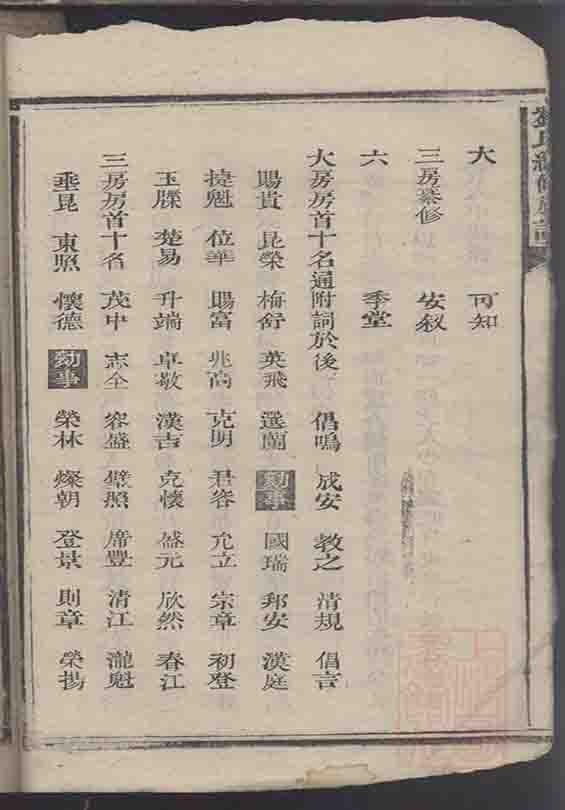 大 可知
三房纂修 安叙
六 季堂
大房房首十名通附詞於後 倡鳴 成安 教之 清規 倡言
賜貴 昆榮 梅舒 英飛 選蘭 勷事 國瑞 邦安 漢庭
捷魁 位華 賜富 兆高 克明 君容 允立 宗章 初登
玉牒 楚易 升端 卓敬 漢吉 克懷 盛元 欣然 春江
三房房首十名 茂中 志全 容盛 璧照 席豐 清江 瀧魁
垂昆 東照 懷德 勷事 榮林 燦朝 登景 則章 榮揚